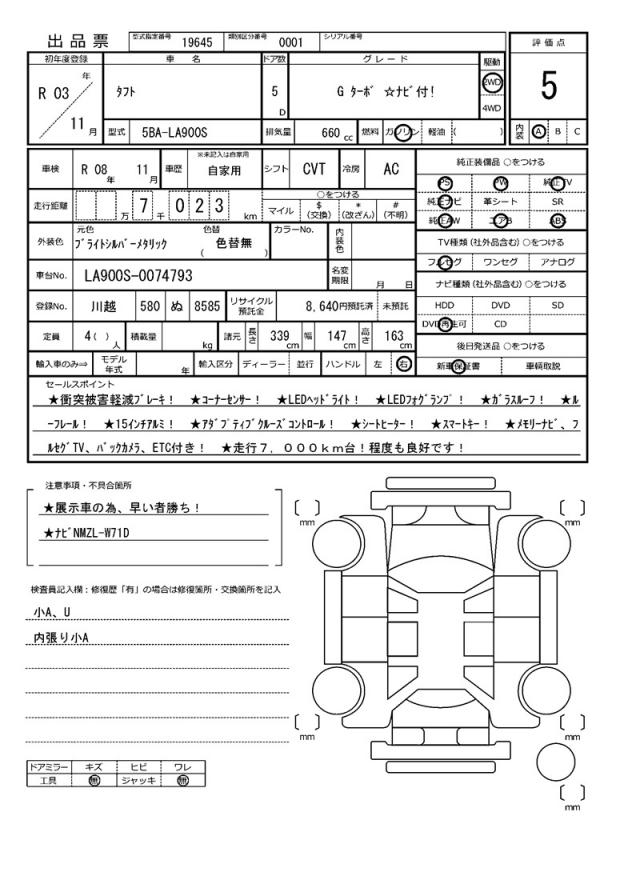 出品票 型式指定番号 19645 類別区分番号 0001 シリアル番号
評価点
初年度登録 車名 ドア数 グレード 駆動
R 03 年 11 月 タフト 5 D G ターボ ☆ナビ付! 2WD 4WD
5
型式 5BA-LA900S 排気量 660 cc 燃料 ガソリン 軽油 ( )
内装 A B C
車検 R 08 年 11 月 車歴 ※未記入は自家用 自家用 シフト CVT 冷房 AC
純正装備品 ○をつける
PS PW 純正TV
走行距離 万 7 千 0 2 3 km
○をつける
マイル $ (交換) * (改ざん) # (不明)
純正ナビ 革シート SR
純正AW エアB ABS
外装色 元色 ブライトシルバーメタリック 色替 ( 色替無 ) カラーNo. 内装色
TV種類 (社外品含む) ○をつける
フルセグ ワンセグ アナログ
車台No. LA900S-0074793 名変期限 月 日
ナビ種類 (社外品含む) ○をつける
登録No. 川越 580 ぬ 8585 リサイクル預託金 8,640円預託済 未預託
HDD DVD SD
DVD再生可 CD
定員 4( ) 人 積載量 kg 諸元 長さ 339 cm 幅 147 cm 高さ 163 cm
後日発送品 ○をつける
輸入車のみ⇒ モデル年式 年 輸入区分 ディーラー 並行 ハンドル 左 右
新車保証書 車輌取説
セールスポイント
★衝突被害軽減ブレーキ! ★コーナーセンサー! ★LEDヘッドライト! ★LEDフォグランプ! ★ガラスルーフ! ★ル
ーフレール! ★15インチアルミ! ★アダプティブクルーズコントロール! ★シートヒーター! ★スマートキー! ★メモリーナビ、フ
ルセグTV、バックカメラ、ETC付き! ★走行7,000km台!程度も良好です!
注意事項・不具合箇所
★展示車の為、早い者勝ち!
★ナビNMZL-W71D
検査員記入欄：修復歴「有」の場合は修復箇所・交換箇所を記入
小A、U
内張り小A
ドアミラー キズ ヒビ ワレ
工具 無 ジャッキ 無
[ ] mm
[ ] mm
[ ] mm
[ ] mm
[ ] mm